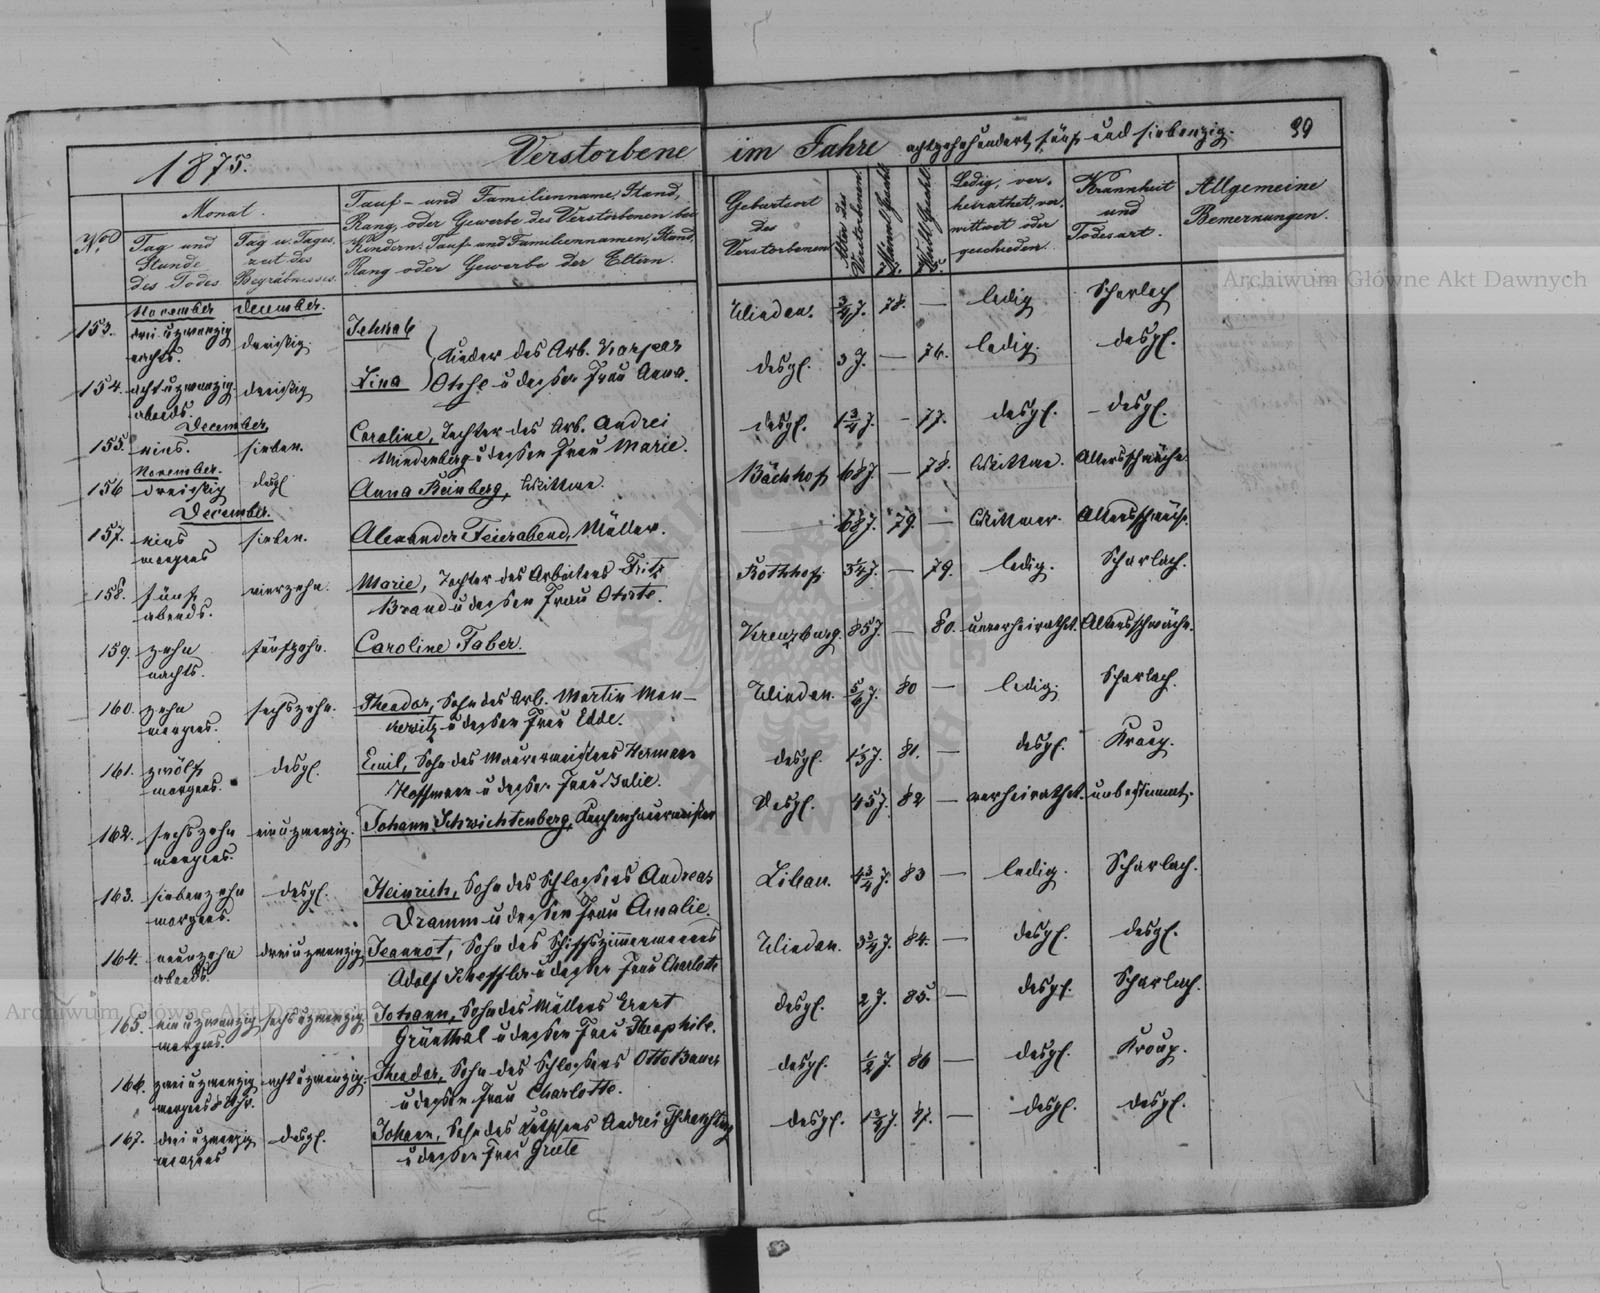 1875. Verstorbene im Jahre achtzehnhundert fünf und siebenzig. 39
No
Monat.
Tag und Stunde des Todes
Tag u. Tageszeit des Begräbnisses.
Tauf- und Familienname, Stand,
Rang, oder Gewerbe des Verstorbenen bei
Kindern: Tauf- und Familiennamen, Stand,
Rang oder Gewerbe der Eltern.
Geburtsort
des
Verstorbenen
Alter des Verstorbenen.
Männl. Geschl.
Weibl. Geschl.
Ledig, ver-
heirathet, ver-
wittwet oder
geschieden.
Krankheit
und
Todesart.
Allgemeine
Bemerkungen.
November December.
153. drei u zwanzig dreißig.
nachts.
Kinder des Arb.
Windau. 3/4 J. 78. — ledig Scharlach
154. acht u zwanzig dreißig Lina u dessen Frau Anna.
abends.
desgl. 3 J. — 76. ledig. desgl.
December
155. eins. sieben. Caroline, Tochter des Arb. Andrei
Mindenberg u dessen Frau Marie.
desgl. 1 3/4 J. — 77. desgl. desgl.
November.
156 dreißig desgl Anna Reinberg, Wittwe.
Bächhof 68 J. — 78. Wittwe. Altersschwäche.
December.
157. eins sieben. Alexander Feierabend, Müller.
morgens
68 J. 79. — Wittwer. Altersschwäche.
158. fünf vierzehn. Marie, Tochter des Arbeiters Fritz
abends. Brand u dessen Frau
— 79. ledig. Scharlach.
159. zehn fünfzehn. Caroline Faber.
nachts.
Kreuzburg 85 J. — 80. unverheirathet. Altersschwäche.
160. zehn sechszehn. Theodor, Sohn des Arb. Martin Man-
morgens. kewitz u dessen Frau Edde.
Windau. 5/6 J. 80 — ledig. Scharlach.
161. zwölf desgl. Emil, Sohn des Maurermeisters Hermann
morgens. Hoffmann u dessen Frau Julie.
desgl. 81. — desgl. Kroup.
162. sechszehn ein u zwanzig. Johann Schwichtenberg, Knochenhauermeister
morgens.
Desgl. 45 J. 82 — verheirathet. unbestimmt.
163. siebenzehn desgl. Heinrich, Sohn des Schlossers Andreas
morgens. Dramm u dessen Frau Amalie.
Libau. 4 3/4 J. 83 — ledig. Scharlach.
164. neunzehn drei u zwanzig Jeannot, Sohn des Schiffszimmermanns
abends. Adolf u dessen Frau Charlotte
Windau. 3 3/4 J. 84. — desgl. desgl.
165. ein u zwanzig sechs u zwanzig Johann, Sohn des Müllers Ernst
morgens. Grünthal u dessen Frau Theophile.
desgl. 2 J. 85. — desgl. Scharlach.
166. zwei u zwanzig acht u zwanzig. Theodor, Sohn des Schlossers Otto Bauer
morgens 8 Uhr. u dessen Frau Charlotte.
desgl. 1/2 J. 86 — desgl. Kroup.
167. drei u zwanzig desgl. Johann, Sohn des Kutschers Andrei
morgens u dessen Frau Grete
desgl. 1 3/4 J. 87. — desgl. desgl.
Archiwum Główne Akt Dawnych
Archiwum Główne Akt Dawnych